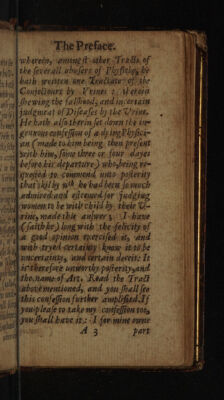 The Preface.
wherein, amongst other Tracts, of
the severall abusers of Physitiqs, he
hath written one Tractate of the
Conjectours by Vrines: wherein
shewing the falshood, and incertain
judgment of Diseases by the Vrine.
He hath also therin set down the in-
genuous confession of a dying Physici-
an (made to him being then present
with him, some three or four dayes
before his departure) who, being re-
quested to commend unto posterity
that skil by wch he had been so much
admired and esteemed for judging
women to be with child by their U-
rine, made this answer; I have
(saith he) long with the felicity of
a good opinion exercised it, and
with tryed certainty know it to be
uncertainty, and certain deceit: It
is therefore unworthy posterity, and
the name of Art. Read the Tract
above mentioned, and you shall see
this confession further amplified. If
you please to take my confession too,
you shall have it: I for mine owne
A 3 part